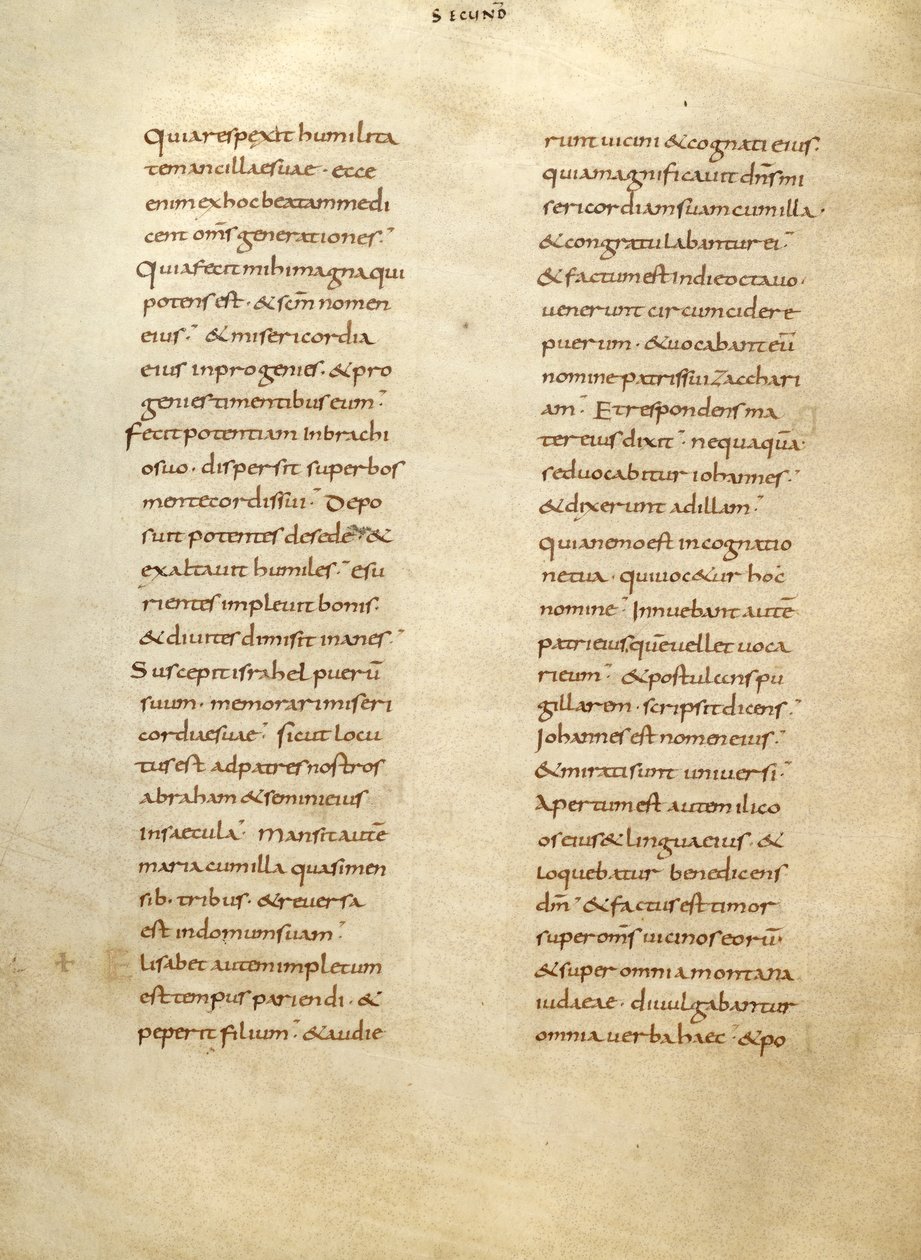 SECUND̄
Quiarespexit humilita
temancillaesuae · ecce
enimexhocbeatammedi
cent om̄s generationes.
Quiafecit mihimagnaqui
potensest · &scm̄ nomen
eius. &misericordia
eius inprogenies · &pro
geniestimentibuseum.
fecitpotentiam Inbrachi
osuo · dispersit superbos
mentecordissui. Depo
suit potentes desede · &
exaltauit humiles. esu
rientesimpleuit bonis.
&diuitesdimisit inanes.
Suscepitisrahel puerū
suum · memorarimiseri
cordiaesuae. sicut locu
tusest adpatresnostros
abraham &seminieius
insaecula. Mansitautē
mariacumilla quasimen
sib· tribus · &reuersa
est indomumsuam.
Elisabet autemimpletum
esttempus pariendi · &
peperit filium. &audie
runt uicini &cognatieius.
quiamagnificauit dn̄smi
sericordiamsuamcumilla ·
&congratulabanturei.
&factumestIndieoctauo ·
uenerunt circumcidere
puerum · &uocabanteū
nominepatrissui Zacchari
am. Etrespondensma
tereiusdixit. nequaquā·
seduocabitur iohannes.
&dixerunt adillam.
Quianemoest incognatio
netua · quiuoc&ur hoc
nomine. Innuebant autē
patrieius, quēuellet uoca
rieum. &postulanspu
gillarem · scripsit dicens.
Johannesestnomeneius.
&miratisunt uniuersi.
Apertumest autemilico
oseius&linguaeius · &
Loquebatur benedicens
dm̄. &factusesttimor
superom̄s uicinoseorū·
&super omniamontana
iudaeae · diuulgabantur
omniauerbahaec. &po